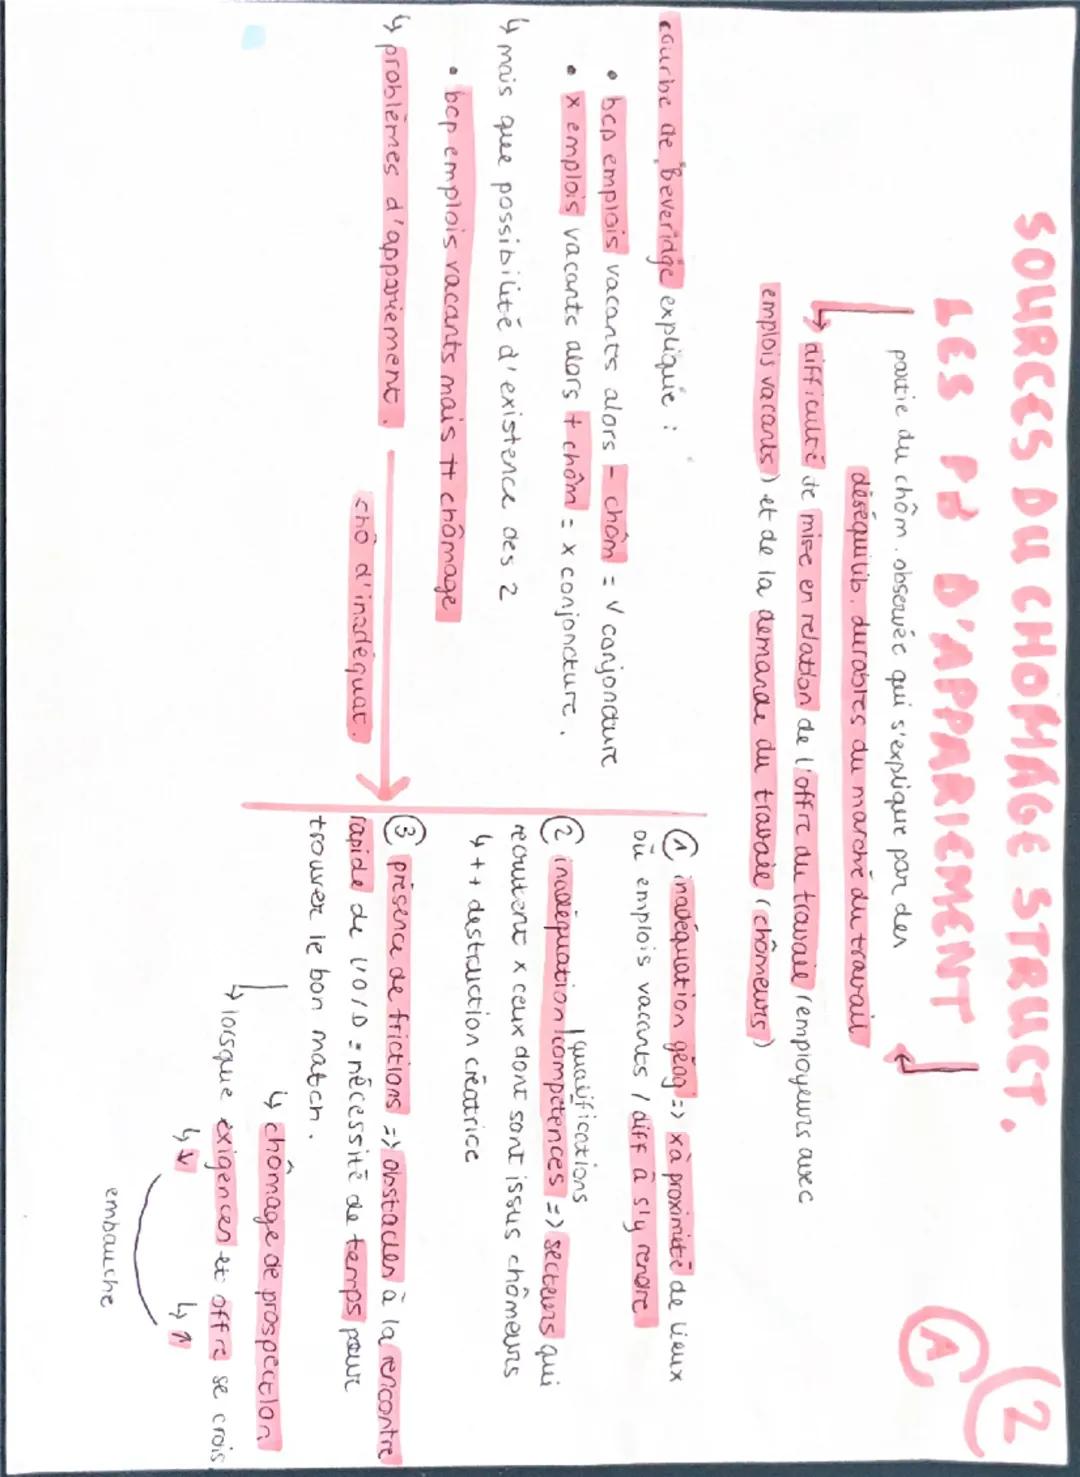 SOURCES DU CHOMAGE STRUCT. (2
LES PB D'APPARIEMENT (A)
partie du chôm. observée qui s'explique par des
déséquilib. durables du marché du travail
↳ difficulté de mise en relation de l'offre du travail (employeurs avec
emplois vacants) et de la demande du travail (chômeurs)
courbe de Beveridge explique :
• bcp emplois vacants alors - chôm = v conjoncture
• x emplois vacants alors + chôm = x conjoncture.
↳ mais que possibilité d'existence des 2
• bcp emplois vacants mais ++ chômage
↳ problèmes d'appariement.
chô d'inadéquat.
① inadéquation géog => x à proximité de lieux
où emplois vacants / diff à s'y rendre
② inadéquation | qualifications
| compétences => secteurs qui
recrutent x ceux dont sont issus chômeurs
↳ ++ destruction créatrice
③ présence de frictions => obstacles à la rencontre
rapide de l'O/D = nécessité de temps pour
trouver le bon match.
↳ chômage de prospection
↳ lorsque exigences et offre se crois
↳ ↓ ↳ ↑
embauche